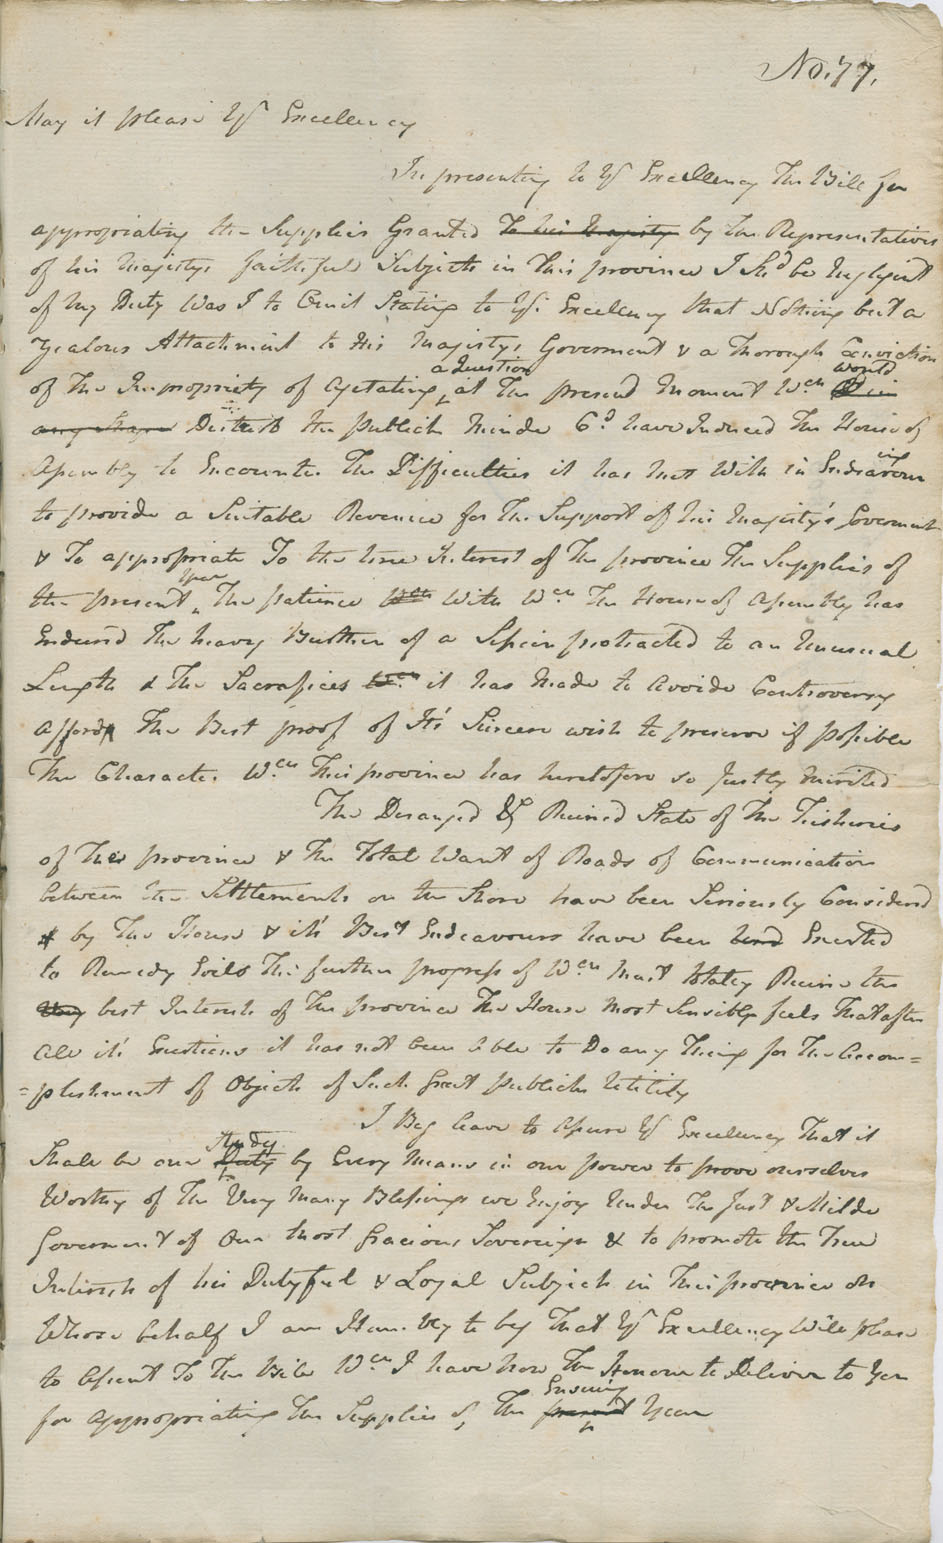 No. 77.
May it please Yr Excellency
In presenting to Yr Excellency The Bill for
appropriating the Supplies Granted To his Majesty by the Representatives
of his Majestys faithful Subjects in this province I Shd be Negligent
of my Duty Was I to Omit Stating to Yr Excellency that Nothing but a
Zealous Attachment to His Majestys Goverment & a Thorough Conviction
of The Impropriety of Agetating a Question at The present Moment Wch would
any Distirb the publick Minde Cd have Induced The House of
Assembly to Encounter The Difficulties it has met With in Endeavouring
to provide a Suitable Revenue for The Support of his Majesty's Goverment
& To appropriate To the true Interest of The province The Supplies of
the present year The patience Wch With Wch The House of Assembly has
Endured The heavy Burthen of a Session protracted to an Unusual
Length & The Sacrafices Wch it has Made to Avoide Controversy
afford The Best proof of It's Sincere wish to preserve if possible
The Character Wch This province has heretofore so Justly Merited
The Deranged & Ruined State of The Fisheries
of The province & The Total Want of Roads of Communication
between the Settlements on the Shore have been Seriously Considered
by The House & it's Best Endeavours have been Used Exerted
to Remedy Evils The further progress of Wch Must totaly Ruine the
Very best Interests of The province The House Most Sensibly feels That after
all it's Exertions it has not been Able to Do any Thing for The Accom=
=plishment of Objects of Such Great publick Utility
I Beg leave to Assure Yr Excellency That it
Shall be our Duty Study by Every Means in our power to prove ourselves
Worthy of The Very Many Blessings we Enjoy Under The Just & Milde
Goverment of Our Most Gracious Sovereign & to promote the True
Interests of his Dutyful & Loyal Subjects in This province on
Whose behalf I am Humbly to beg That Yr Excellency Will please
to Assent To The Bill Wch I have Now The Honour to Deliver to You
for appropriating The Supplies of The present Ensuing Year